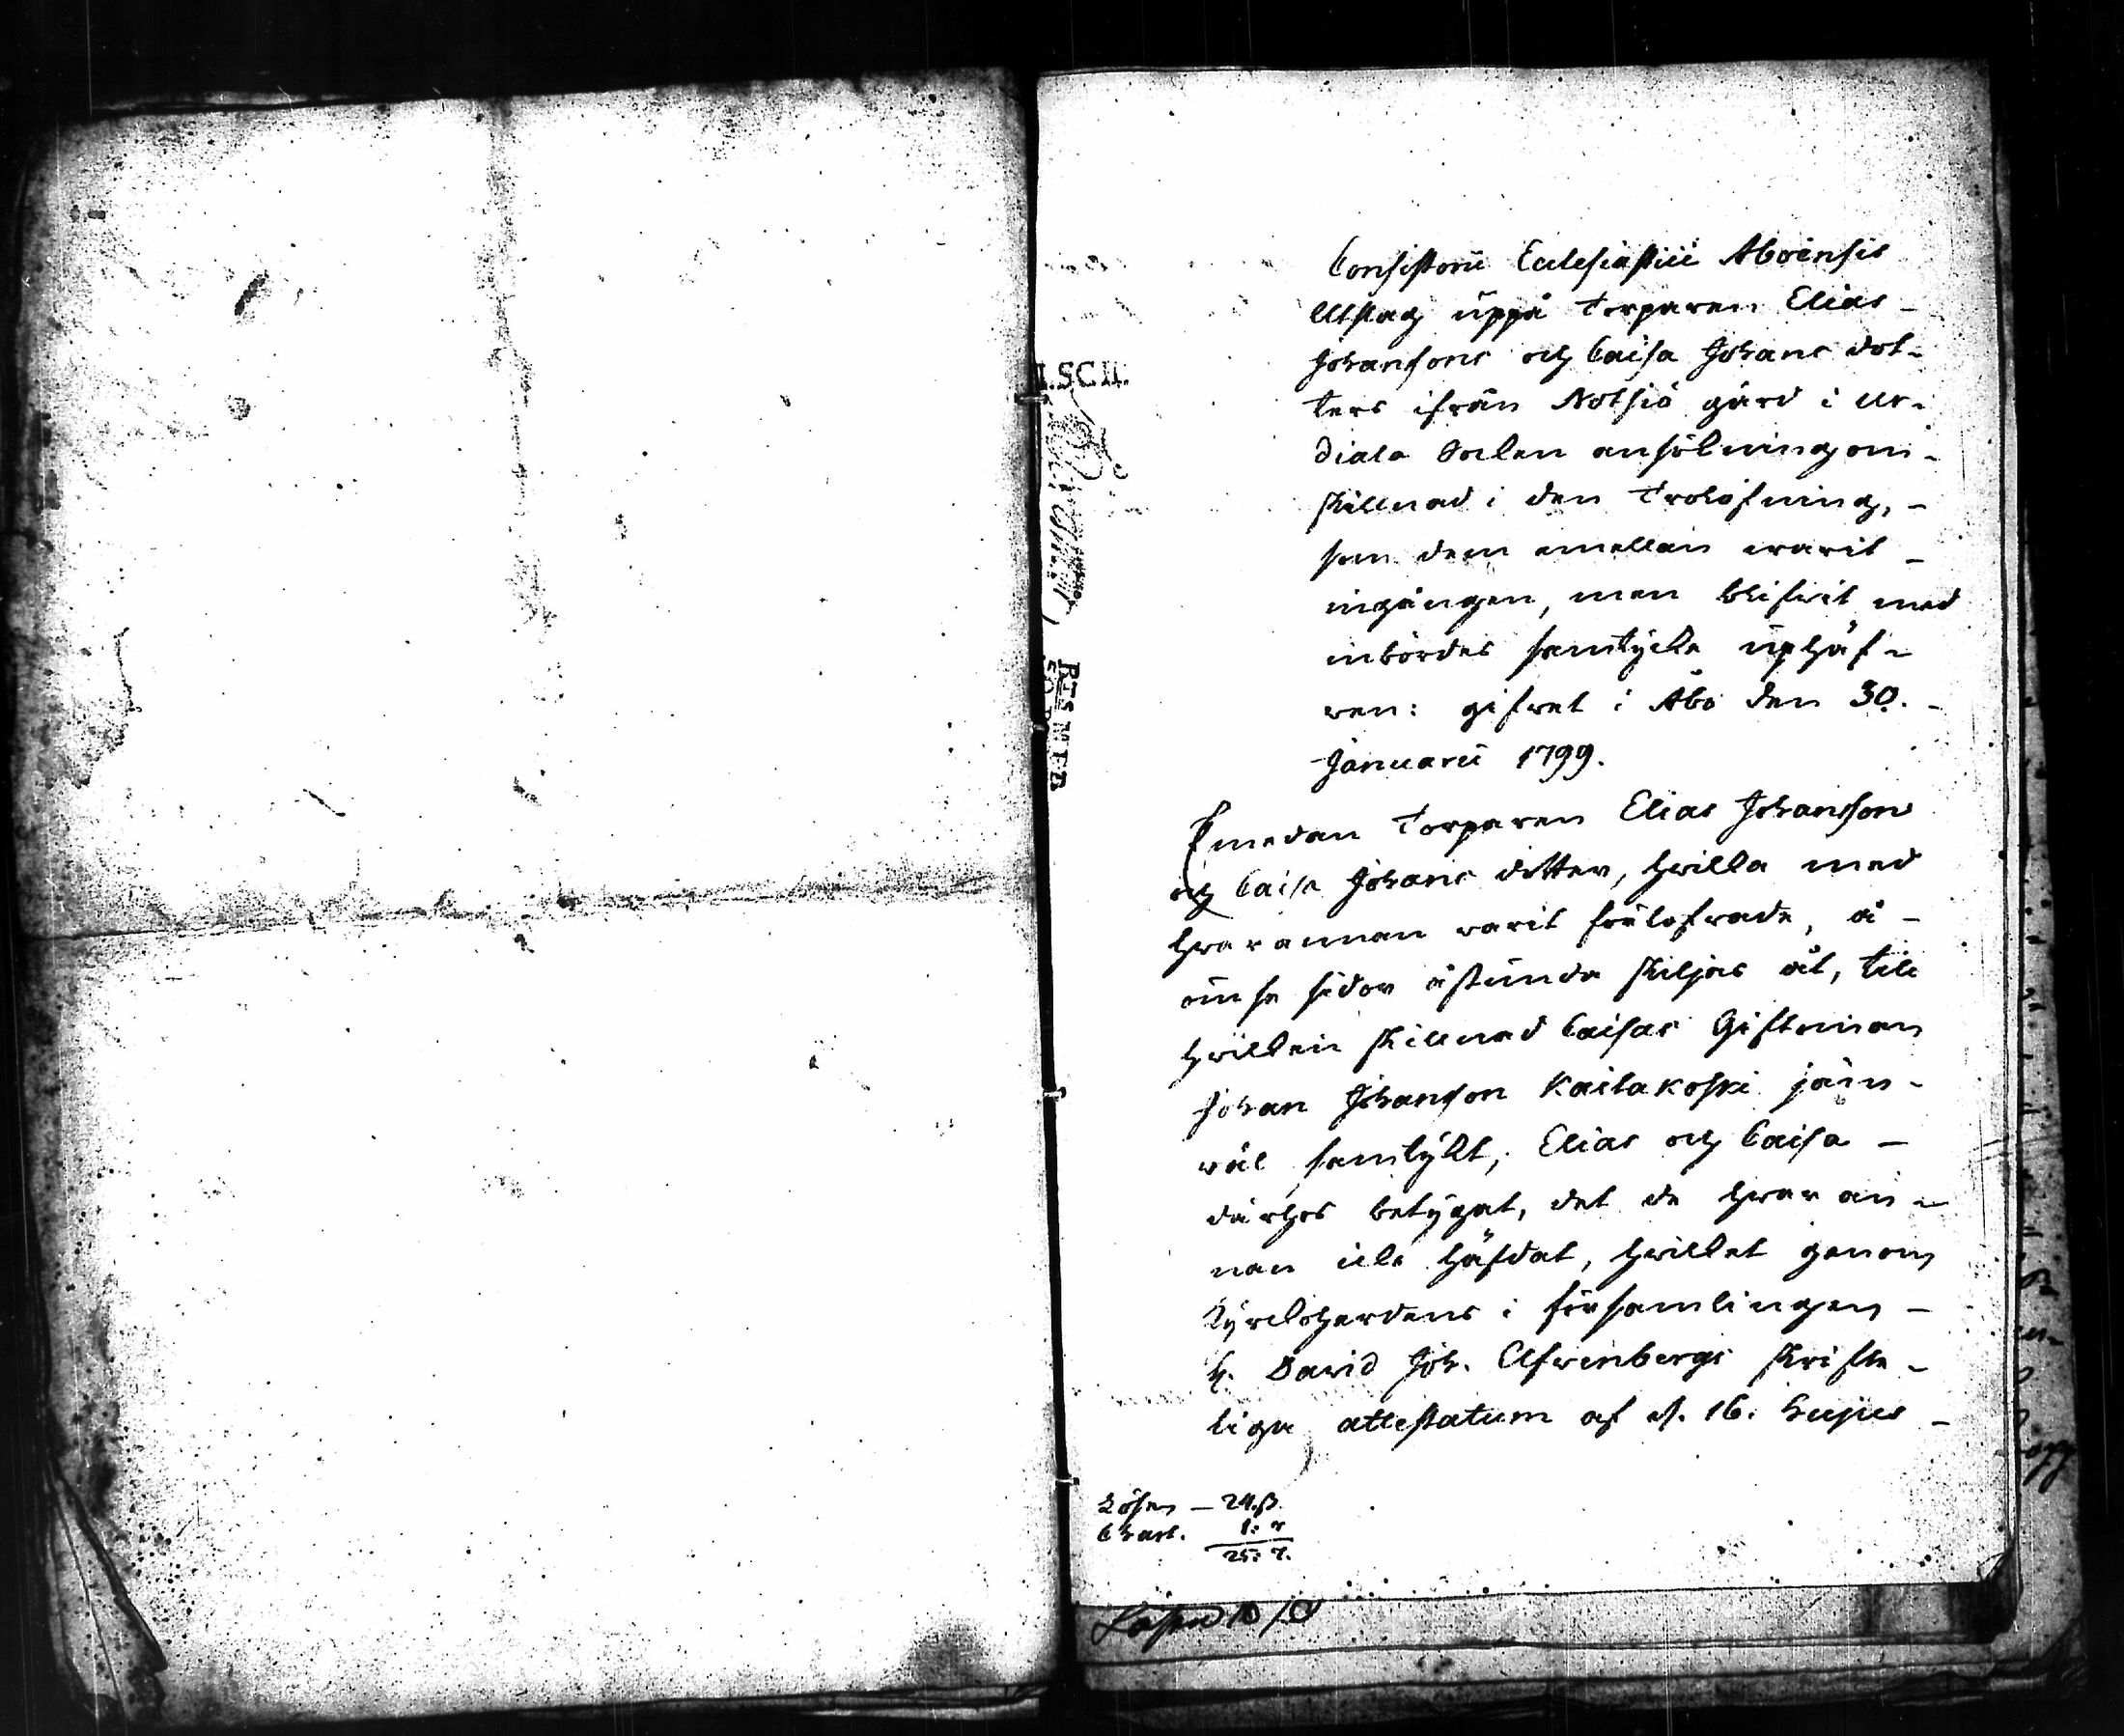 Consistorii Ecclesiastici Aboënsis
Utslag uppå Torparen Elias
Johansons och Caisa Johans dot-
ters ifrån Notsiö gård i Ur-
diala Soken ansökning om
skillnad i den Trolofning,
som dem emellan warit
ingången, men blifwit med
inbördes samtycke uphäf-
wen: gifwet i Åbo den 30.
Januarii 1799.
Emedan Torparen Elias Johansson
och Caisa Johans dotter, hwilka med
hwarannan warit förlofwade, å
ömse sidor åstunda skiljas åt, till
hwilken skillnad Caisas Giftoman
Johan Johanson Kailakoski jäm-
wäl samtykt, Elias och Caisa
därhos betygat, det de hwar an-
nan icke häfdat, hwilket genom
Kyrckoherdens i församlingen
H. David Joh. Cifwenbergs skrifte-
liga attestatum af d. 16. hujus
Lösen — 24.ß.
Chart. 1: 7
25: 7.